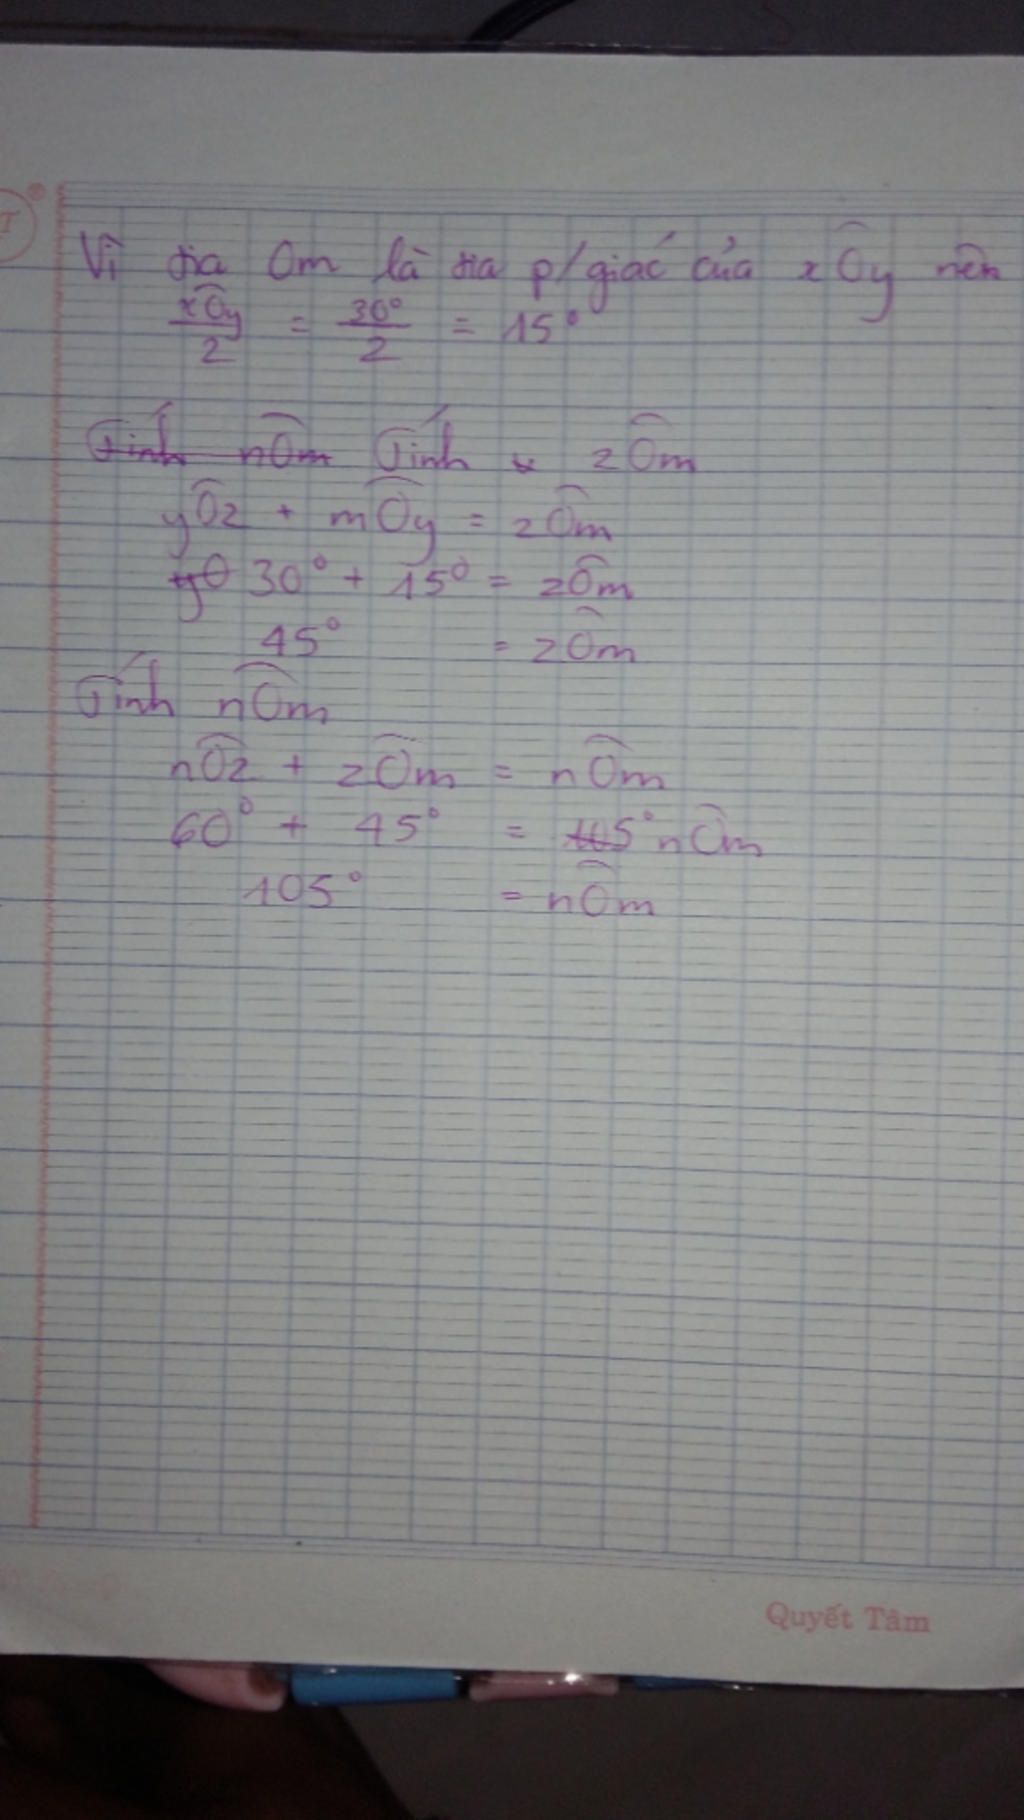 Vì tia Om là tia p/giác của xÔy nên
xÔy/2 = 30°/2 = 15°
Tính nÔm Tính zÔm
yÔz + mÔy = zÔm
yO 30° + 15° = zÔm
45° = zÔm
Tính nÔm
nÔz + zÔm = nÔm
60° + 45° = 105° nÔm
105° = nÔm
Quyết Tâm